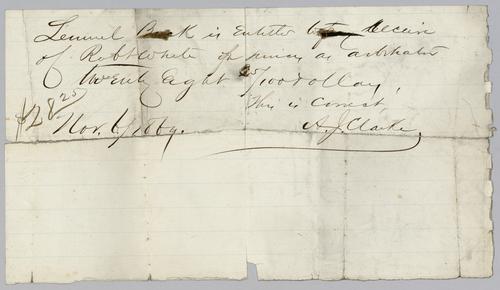 Lemuel is Entitled to receive
of Robt White for services as arbitrator
Twenty Eight 25/100 Dollars,
This is Correct
$28 25
Nov. 6/1869. A. J. Clarke,